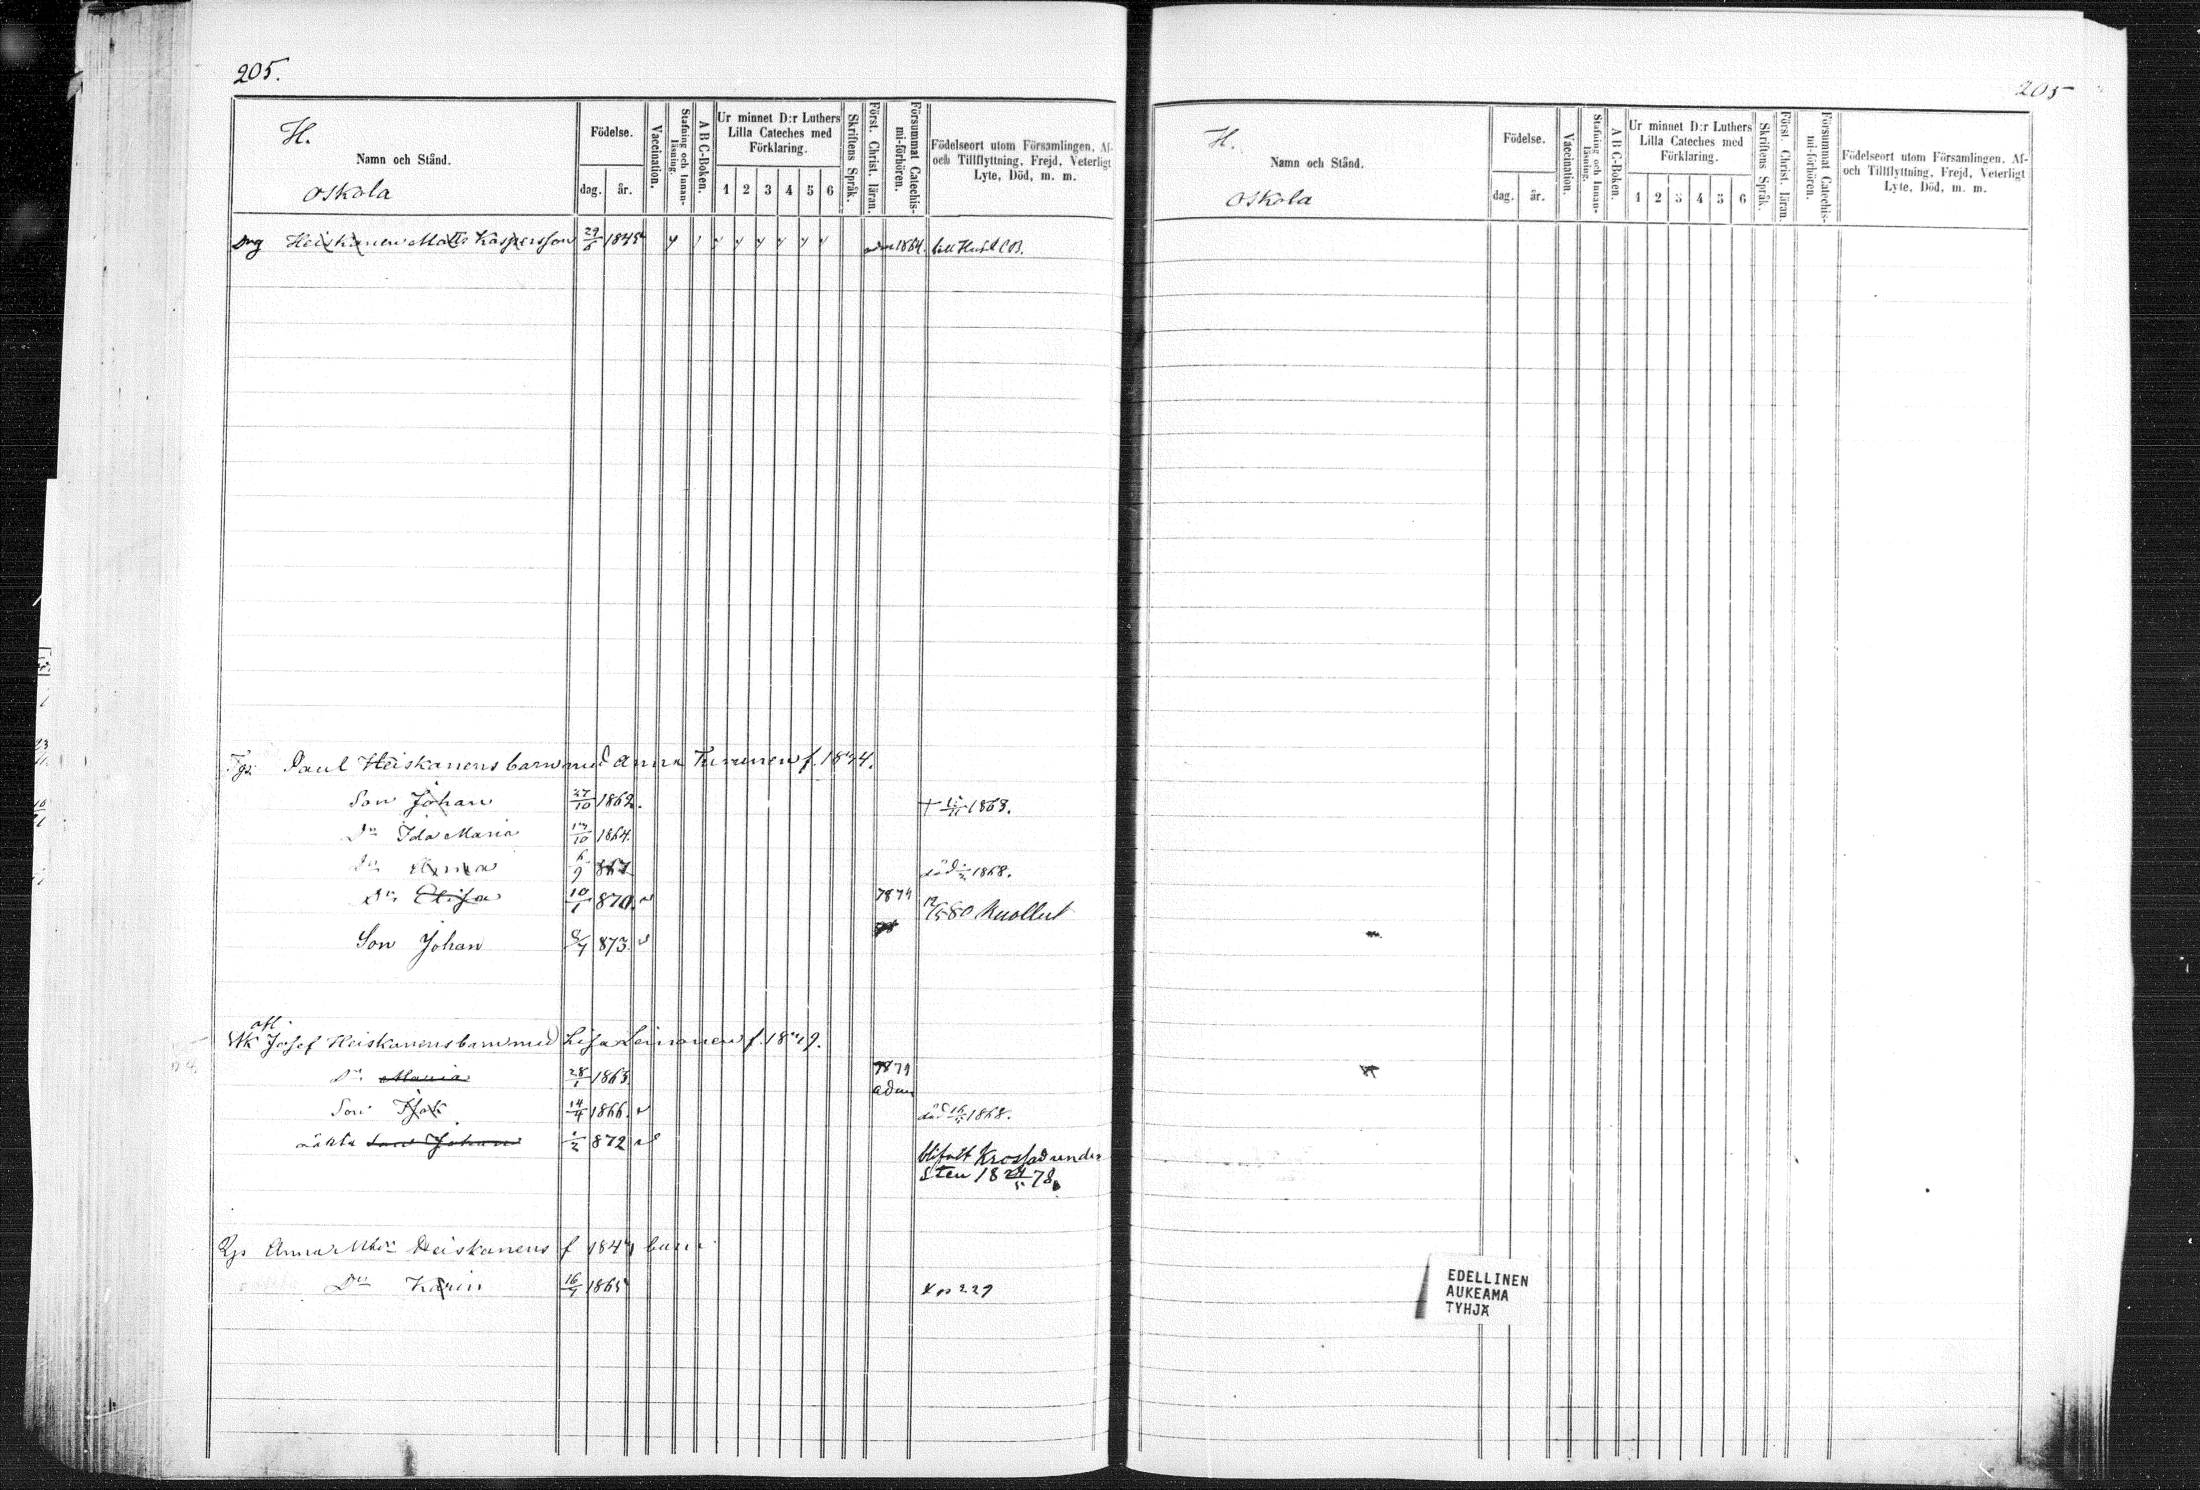 205.
H.
Namn och Stånd.
oskola
Födelse.
dag. år.
Vaccination.
Stafning och Innanläsning.
A B C-Boken.
Ur minnet D:r Luthers
Lilla Cateches med
Förklaring.
1 2 3 4 5 6
Skriftens Språk.
Först. Christ. läran.
Försummat Catechismi-förhören.
Födelseort utom Församlingen, Af-
och Tillflyttning, Frejd, Veterligt
Lyte, Död, m. m.
Drg Heiskanen Matts Kaspersson 29/6 1845 1864.
Paul Heiskanens barn med Anna f. 1834.
Son Johan 27/10 1862. † 1863.
Dr Ida Maria 13/10 1864.
Dr Anna 6/9 867 död 1868.
Dr Elisa 10/1 870. 7879 12/5 80 Kuollut
Son Johan 8/7 873.
afl.
Josef Heiskanens barn med Lisa f.
Dr Maria 28/1 1863 7879
adm
Son 14/4 1866. död 1868.
oäkta Son Johan 872 blifvit Krossad under
Sten 18 78.
Anna Heiskanens f barn
Dr Karin 16/9 1865 229
205
H.
Namn och Stånd.
oskola
Födelse.
dag. år.
Vaccination.
Stafning och Innanläsning.
A B C-Boken.
Ur minnet D:r Luthers
Lilla Cateches med
Förklaring.
1 2 3 4 5 6
Skriftens Språk.
Först. Christ. läran.
Försummat Catechismi-förhören.
Födelseort utom Församlingen, Af-
och Tillflyttning, Frejd, Veterligt
Lyte, Död, m. m.
EDELLINEN
AUKEAMA
TYHJÄ